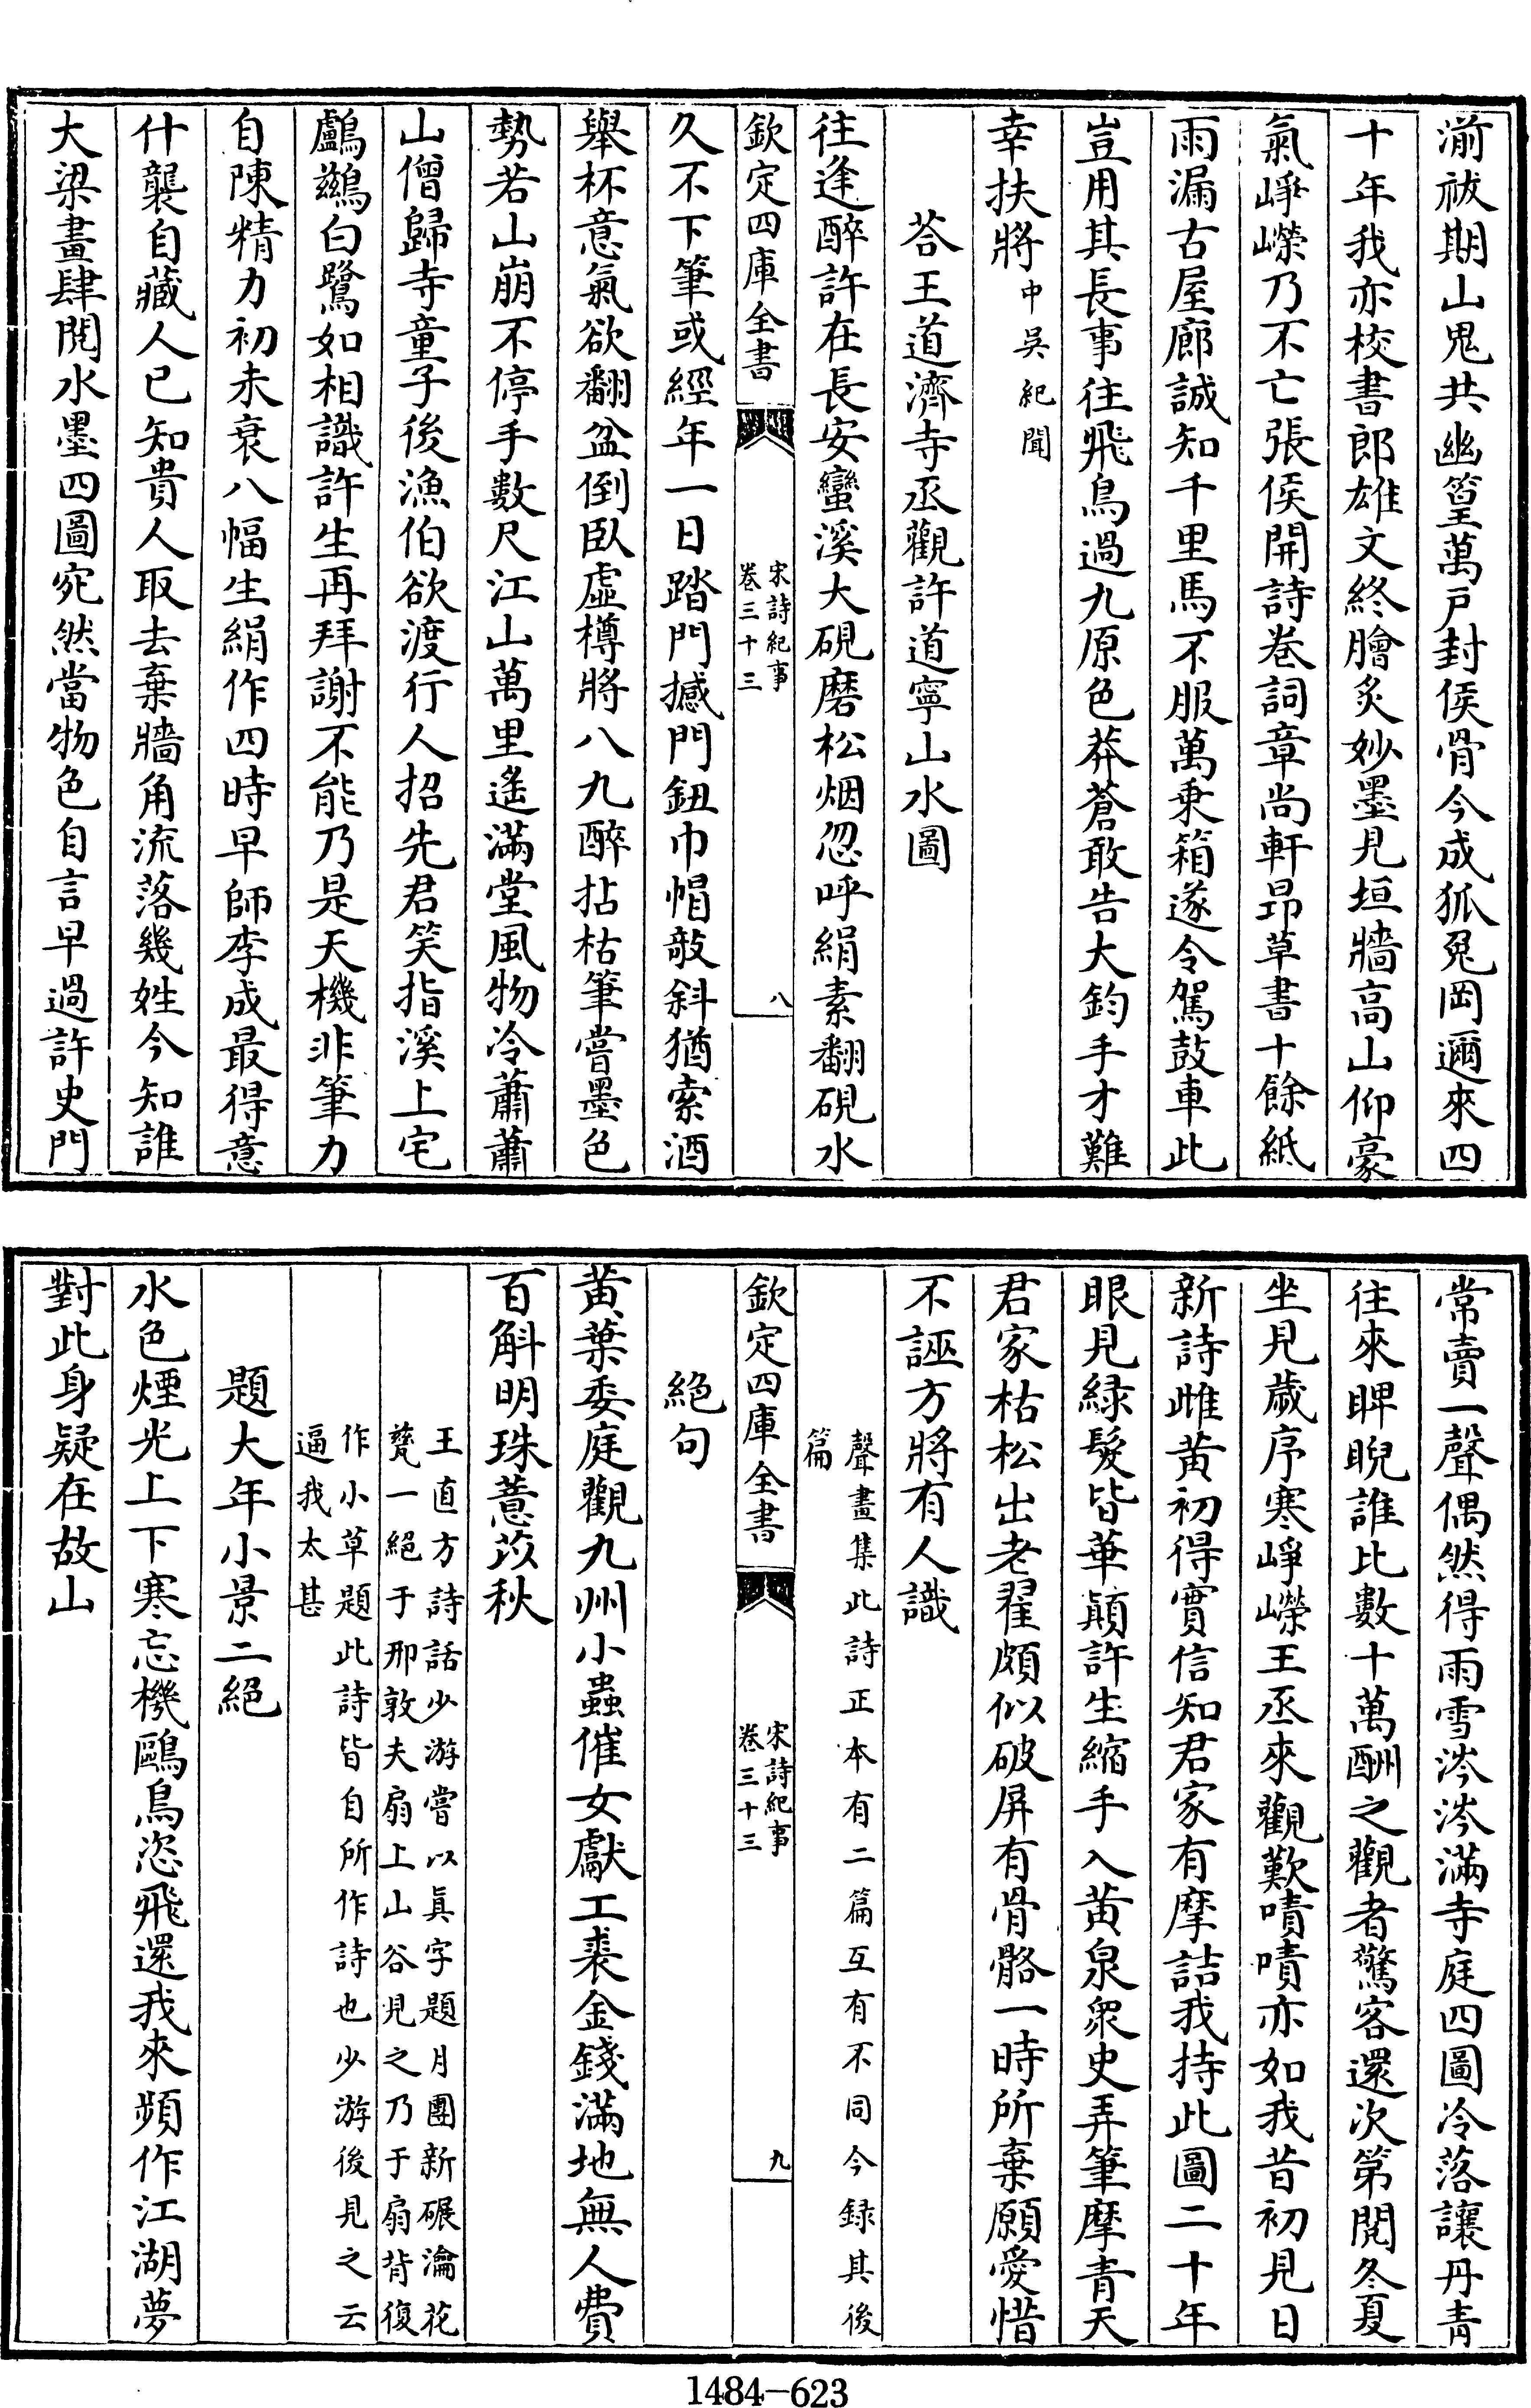 湔祓期山鬼共幽篁萬戸封侯骨今成狐兔岡邇來四
十年我亦校書郎雄文終膾炙妙墨見垣牆高山仰豪
氣崢嶸乃不亡張侯開詩卷詞章尚軒昂草書十餘紙
雨漏古屋廊誠知千里馬不服萬乗箱遂令駕鼓車此
豈用其長事往飛鳥過九原色莽蒼敢告大鈞手才難
幸扶將中吳紀聞
荅王道濟寺丞觀許道寧山水圖
往逢醉許在長安蠻溪大硯磨松烟忽呼絹素翻硯水
欽定四庫全書
宋詩紀事
卷三十三
八
久不下筆或經年一日踏門撼門鈕巾帽敧斜猶索酒
舉杯意氣欲翻盆倒臥虛樽將八九醉拈枯筆嘗墨色
勢若山崩不停手數尺江山萬里遙滿堂風物冷蕭蕭
山僧歸寺童子後漁伯欲渡行人招先君笑指溪上宅
鸕鷀白鷺如相識許生再拜謝不能乃是天機非筆力
自陳精力初未衰八幅生絹作四時早師李成最得意
什襲自藏人已知貴人取去棄牆角流落幾姓今知誰
大梁畫肆閱水墨四圖宛然當物色自言早過許史門
常賣一聲偶然得雨雪涔涔滿寺庭四圖冷落讓丹青
往來睥睨誰比數十萬酬之觀者驚客還次第閱冬夏
坐見歲序寒崢嶸王丞來觀歎嘖嘖亦如我昔初見日
新詩雌黃初得實信知君家有摩詰我持此圖二十年
眼見緑髮皆華顚許生縮手入黃泉衆史弄筆摩青天
君家枯松出老翟頗似破屏有骨骼一時所棄願愛惜
不誣方將有人識
聲畫集此詩正本有二篇互有不同今録其後
篇
欽定四庫全書
宋詩紀事
卷三十三
九
絕句
黃葉委庭觀九州小蟲催女獻工裘金錢滿地無人費
百斛明珠薏苡秋
王直方詩話少游嘗以眞字題月團新碾瀹花
甆一絕于邢敦夫扇上山谷見之乃于扇背復
作小草題此詩皆自所作詩也少游後見之云
逼我太甚
題大年小景二絕
水色煙光上下寒忘機鷗鳥恣飛還我來頻作江湖夢
對此身疑在故山
1484-623